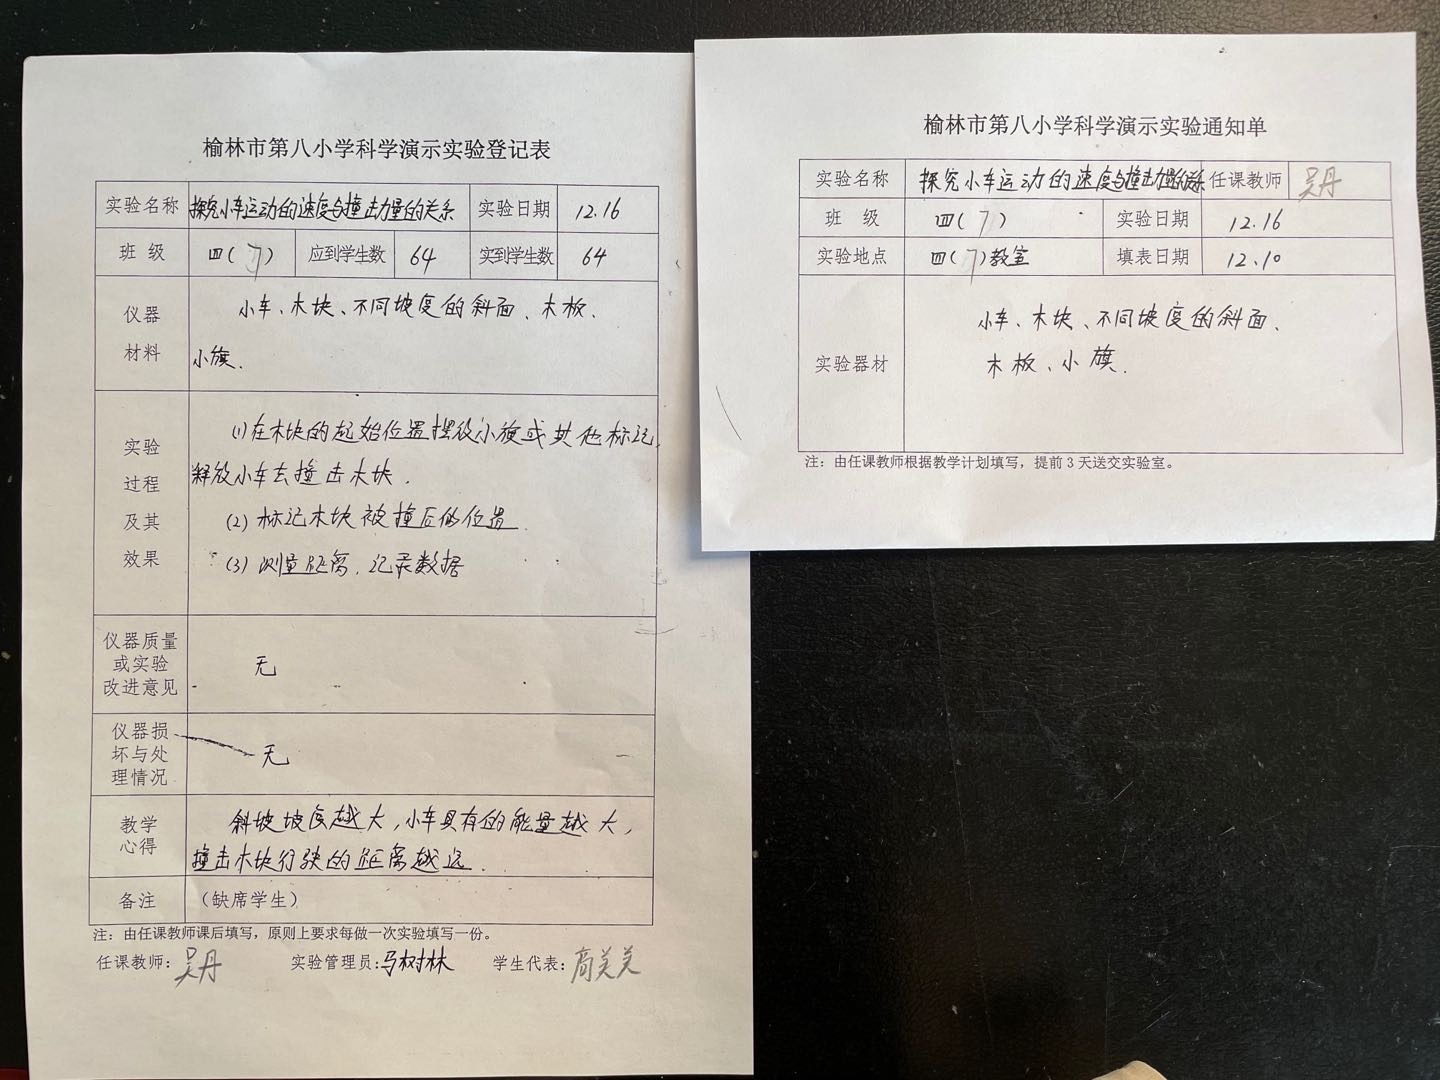 榆林市第八小学科学演示实验登记表
实验名称 探究小车运动的速度与撞击力量的关系 实验日期 12.16
班 级 四(7) 应到学生数 64 实到学生数 64
仪器
材料
小车、木块、不同坡度的斜面、木板、
小旗.
实验
过程
及其
效果
(1)在木块的起始位置摆放小旗或其他标记,
释放小车去撞击木块.
(2)标记木块被撞后的位置.
(3)测量距离,记录数据
仪器质量
或实验
改进意见
无
仪器损
坏与处
理情况
无
教学
心得
斜坡坡度越大,小车具有的能量越大,
撞击木块行驶的距离越远.
备注 (缺席学生)
注:由任课教师课后填写,原则上要求每做一次实验填写一份。
任课教师:吴丹 实验管理员:马树林 学生代表:
榆林市第八小学科学演示实验通知单
实验名称 探究小车运动的速度与撞击力量的关系 任课教师 吴丹
班 级 四(7) 实验日期 12.16
实验地点 四(7)教室 填表日期 12.10
实验器材
小车、木块、不同坡度的斜面、
木板、小旗.
注:由任课教师根据教学计划填写,提前3天送交实验室。